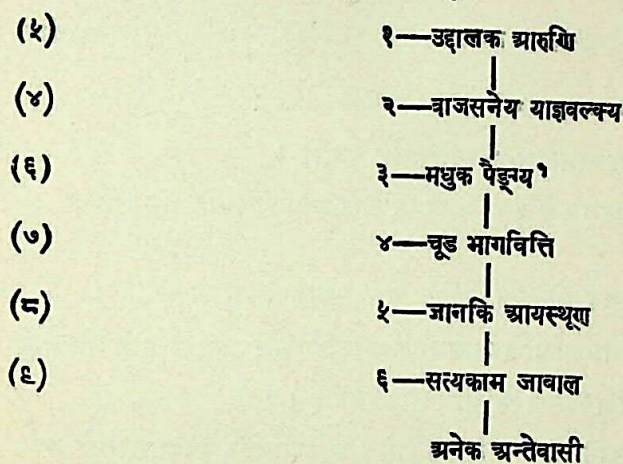 (५) १—उद्दालक आरुणि
(४) २—वाजसनेय याज्ञवल्क्य
(६) ३—मधुक पैङ्ग्य१
(७) ४—चूड भागवित्ति
(८) ५—जानकि आयस्थूण
(९) ६—सत्यकाम जाबाल
अनेक अन्तेवासी